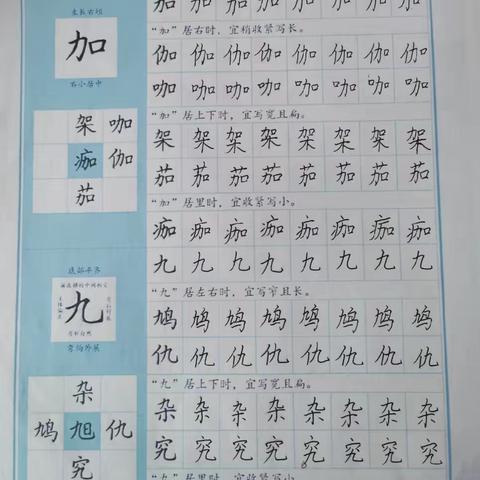 左长右短
加
右小居中
架 咖
痂 伽
茄
底部平齐
九
弯钩外展
杂
鸠 旭 仇
究
加 加 加 加 加 加 加 加
“加”居右时，宜稍收紧写长。
伽 伽 伽 伽 伽 伽 伽 伽
咖 咖 咖 咖 咖 咖 咖 咖
“加”居上下时，宜写宽且扁。
架 架 架 架 架 架 架 架
茄 茄 茄 茄 茄 茄 茄 茄
“加”居里时，宜收紧写小。
痂 痂 痂 痂 痂 痂 痂 痂
九 九 九 九 九 九 九 九
“九”居左右时，宜写窄且长。
鸠 鸠 鸠 鸠 鸠 鸠 鸠 鸠
仇 仇 仇 仇 仇 仇 仇 仇
“九”居上下时，宜写宽且扁。
杂 杂 杂 杂 杂 杂 杂 杂
究 究 究 究 究 究 究 究
“九”居里时，宜收紧写小